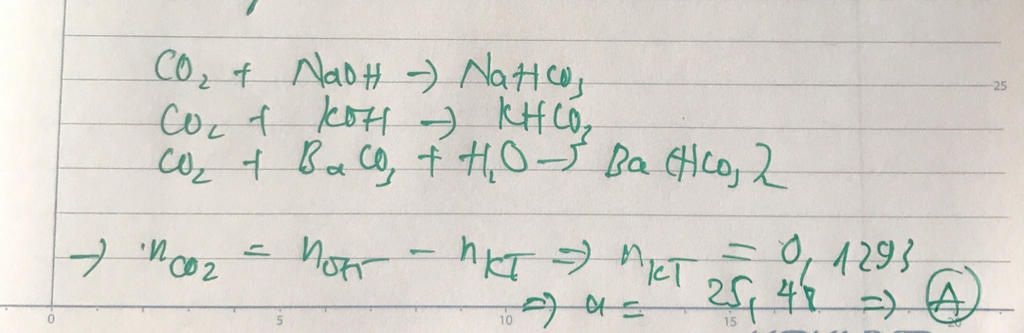 CO₂ + NaOH → NaHCO₃
25
CO₂ + KOH → KHCO₃
CO₂ + BaCO₃ + H₂O → Ba(HCO₃)2
→ nCO₂ = nOH⁻ − nKT ⇒ nKT = 0,1293
⇒ a = 25,48 ⇒ A
0 5 10 15